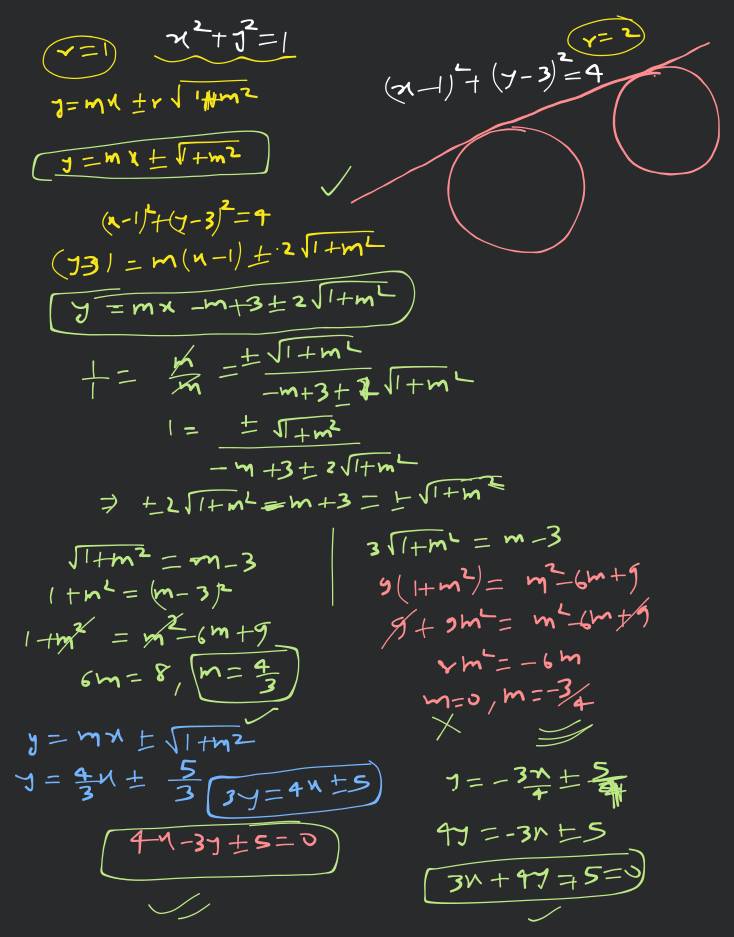 r=1
x²+y²=1
r=2
(x-1)²+(y-3)²=4
y=mx ±r √1+m²
y=mx± √1+m²
(x-1)²+(y-3)²=4
(y-3) = m(x-1) ± 2√1+m²
y = mx -m+3±2√1+m²
1/1 = m/m = ±√1+m² / -m+3±2√1+m²
1 = ± √1+m² / -m+3±2√1+m²
⇒ ±2√1+m² -m+3 = ±√1+m²
√1+m² = m-3
1+m² = (m-3)²
1+m² = m²-6m+9
6m=8, m=4/3
y=mx ± √1+m²
y = 4/3x ± 5/3
3y=4x±5
4x-3y±5=0
3√1+m² = m-3
9(1+m²) = m²-6m+9
9+9m² = m²-6m+9
8m²=-6m
m=0, m=-3/4
y = -3x/4 ± 5/4
4y=-3x±5
3x+4y∓5=0